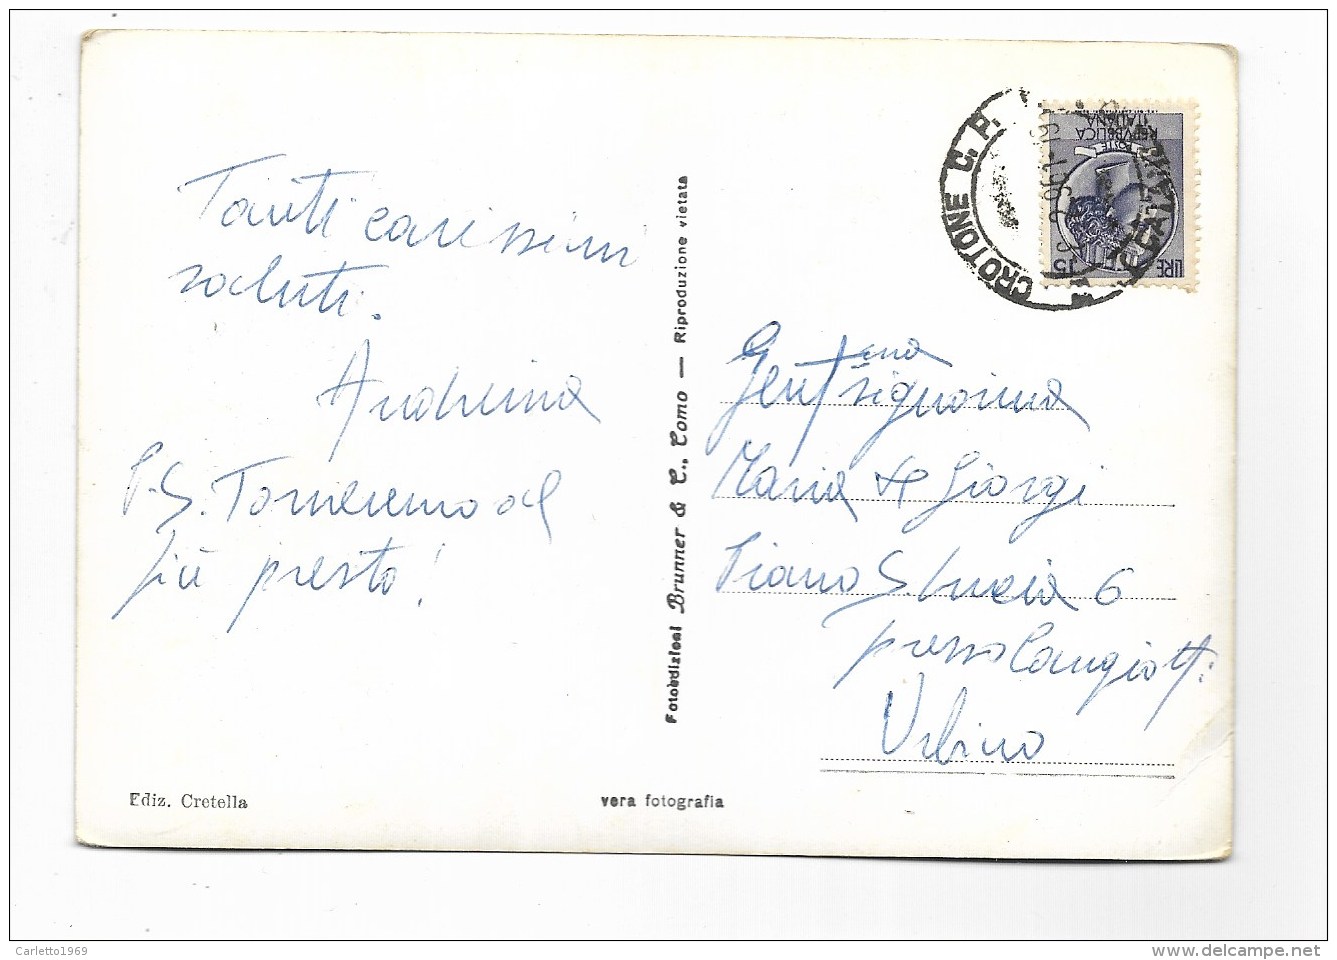 Tanti carissimi
saluti.
Andreina
P.S. Torneremo al
più presto!
Ediz. Cretella
Fotoedizioni Brunner & C., Como — Riproduzione vietata
vera fotografia
CROTONE C. P.
REPVBBLICA
ITALIANA
POSTE
LIRE 15
Gent.ma signorina
Maria De Giorgi
Piano S. Lucia 6
presso Cangiotti
Urbino
Carletto1969
www.delcampe.net